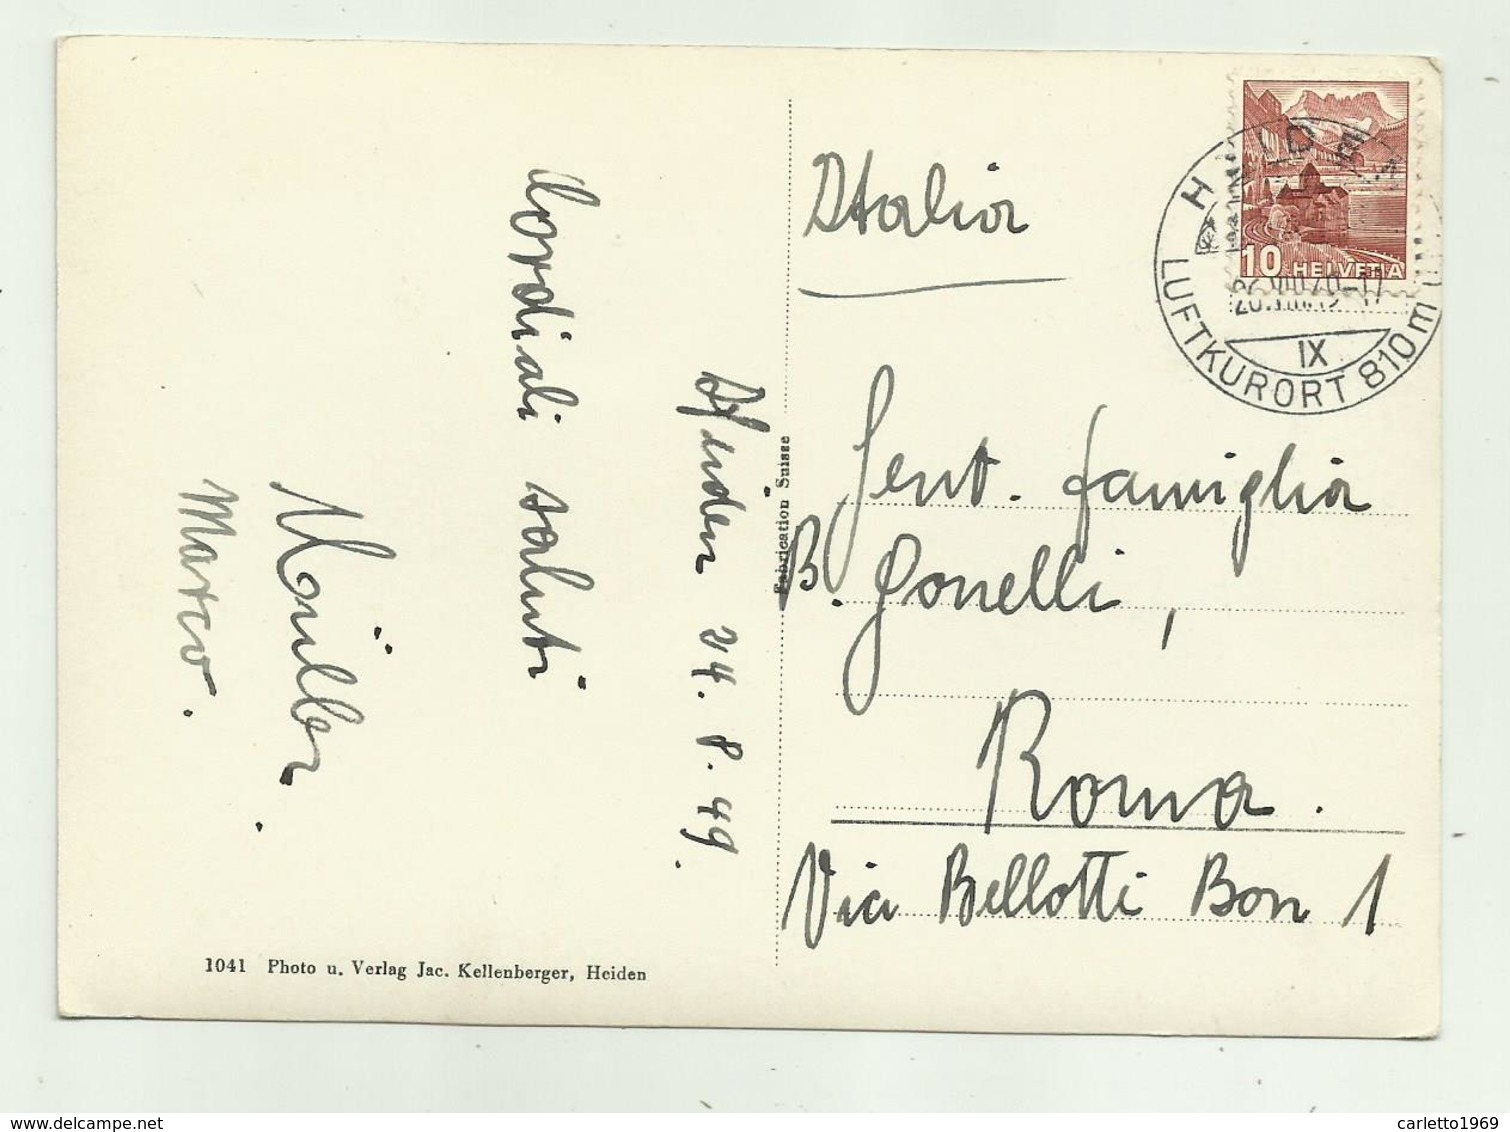 Heiden 24. 8. 49.
Cordiali saluti
Müller
Marco.
1041 Photo u. Verlag Jac. Kellenberger, Heiden
Fabrication Suisse
10 HELVETIA
LUFTKURORT 810 m
IX
Italia
Gent. famiglia
B. Gonelli,
Roma.
Via Bellotti Bon 1
www.delcampe.net
carletto1969